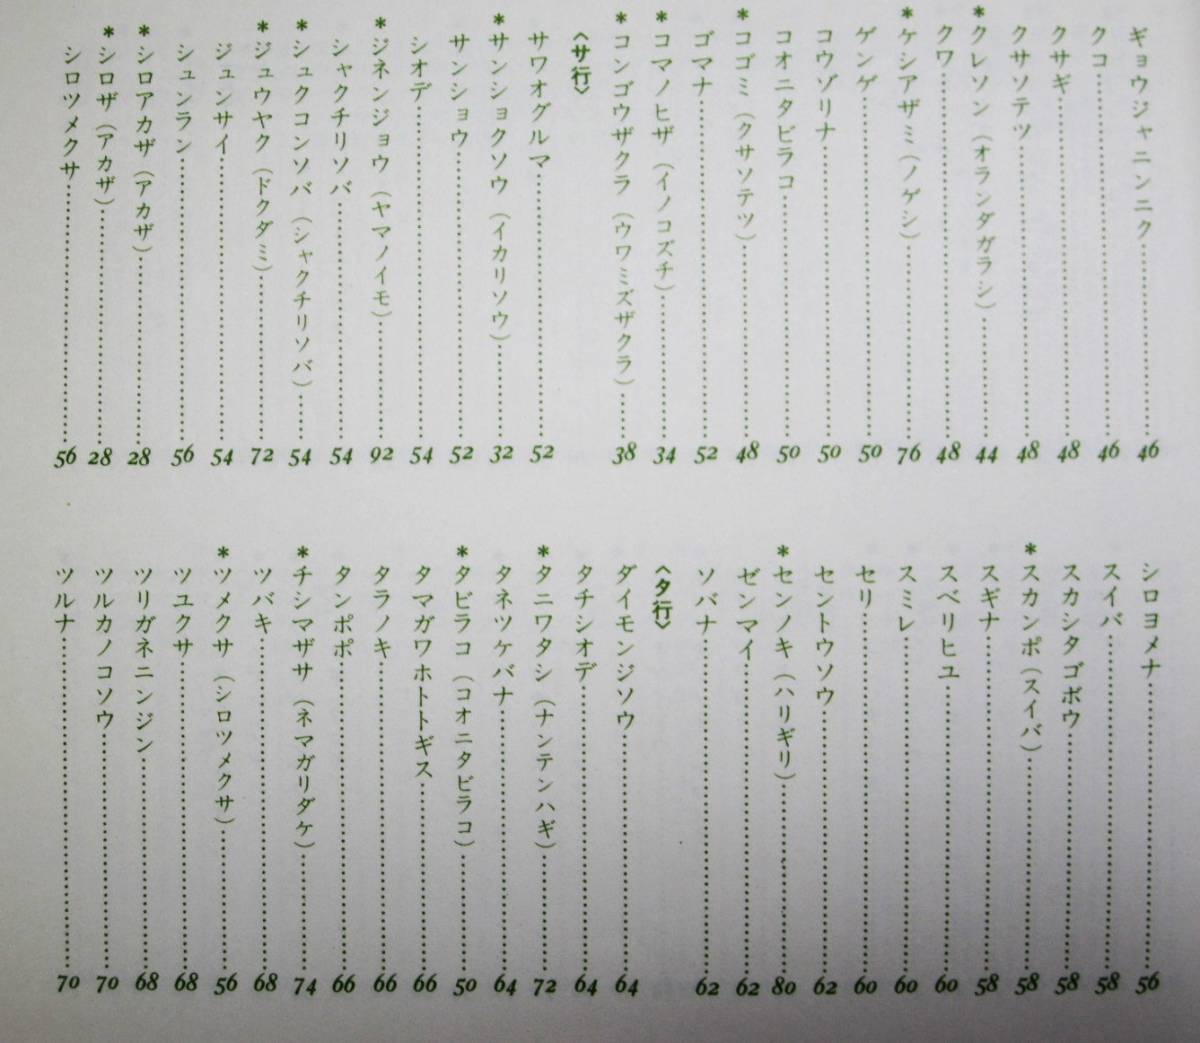 ギョウジャニンニク……46
クコ……46
クサギ……48
クサソテツ……48
*クレソン（オランダガラシ）……44
クワ……48
*ケシアザミ（ノゲシ）……76
ゲンゲ……50
コウゾリナ……50
コオニタビラコ……50
*コゴミ（クサソテツ）……48
ゴマナ……52
*コマノヒザ（イノコズチ）……34
*コンゴウザクラ（ウワミズザクラ）……38
〈サ行〉
サワオグルマ……52
*サンショクソウ（イカリソウ）……32
サンショウ……52
シオデ……54
*ジネンジョウ（ヤマノイモ）……92
シャクチリソバ……54
*シュクコンソバ（シャクチリソバ）……54
*ジュウヤク（ドクダミ）……72
ジュンサイ……54
シュンラン……56
*シロアカザ（アカザ）……28
*シロザ（アカザ）……28
シロツメクサ……56
シロヨメナ……56
スイバ……58
スカシタゴボウ……58
*スカンポ（スイバ）……58
スギナ……58
スベリヒユ……60
スミレ……60
セリ……60
セントウソウ……62
*センノキ（ハリギリ）……80
ゼンマイ……62
ソバナ……62
〈タ行〉
ダイモンジソウ……64
タチシオデ……64
*タニワタシ（ナンテンハギ）……72
タネツケバナ……64
*タビラコ（コオニタビラコ）……50
タマガワホトトギス……66
タラノキ……66
タンポポ……66
*チシマザサ（ネマガリダケ）……74
ツバキ……68
*ツメクサ（シロツメクサ）……56
ツユクサ……68
ツリガネニンジン……68
ツルカノコソウ……70
ツルナ……70